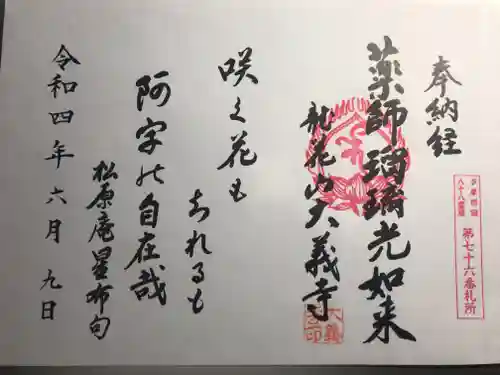 奉納経
多摩四国
八十八霊場
第七十六番札所
薬師瑠璃光如来
龍花山大義寺
咲く花も
あれるも
阿字の自在哉
松原庵星布句
令和四年六月九日